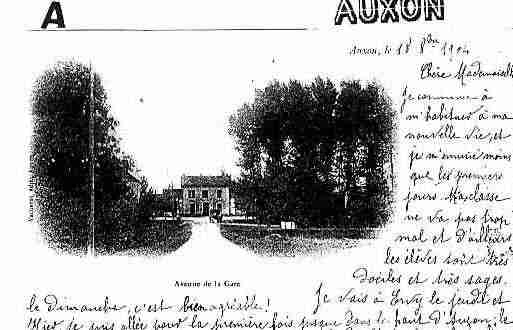 A
AUXON
Auxon, le 18 8bre 1904
Chère Mademoiselle
je commence à
m'habituer à ma
nouvelle vie, et
je m'ennuie moins
que les premiers
jours. Ma classe
ne va pas trop
mal et d'ailleurs
les élèves sont très
dociles et très sages.
Avenue de la Gare
Je vais à Ervy le jeudi et
le dimanche, c'est bien agréable!
Hier je suis allée pour la première fois jusque dans le haut d'Auxon, le